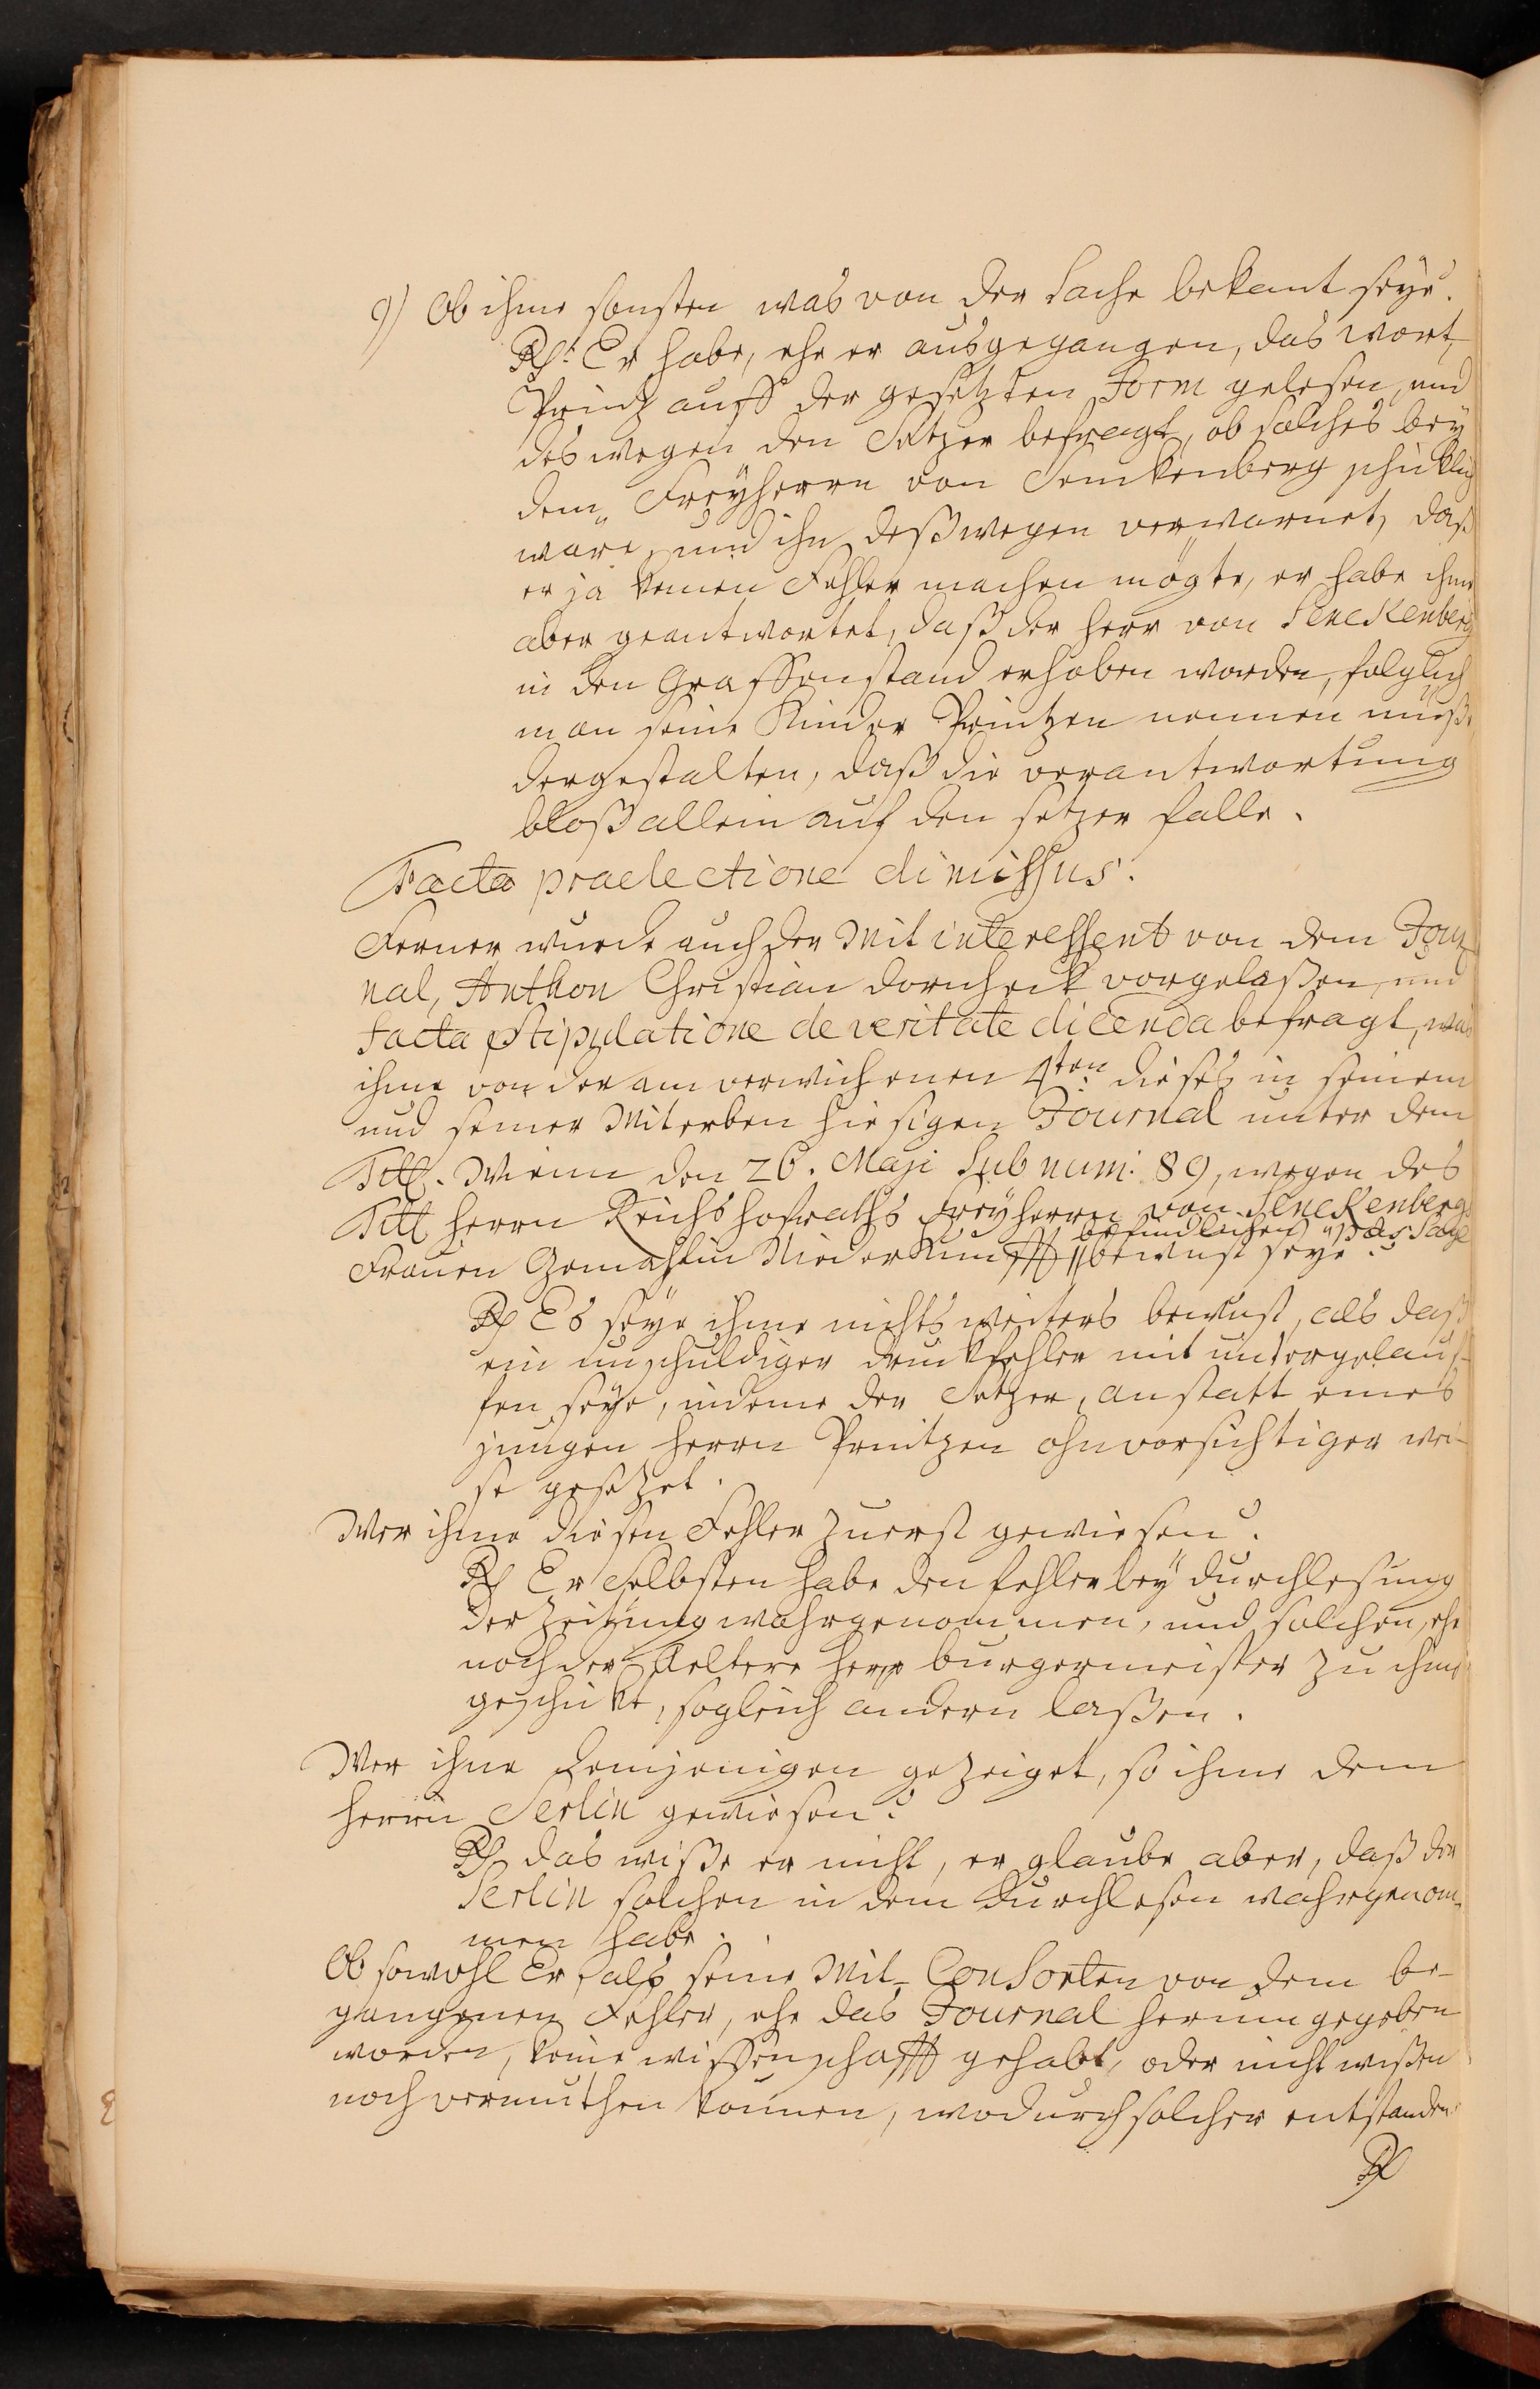 9) Ob ihme sonsten was von der Sache bekant seye?
Rs: Er habe, ehe er ausgegangen, das wort,
Printz auff der gesetzten Form gelesen, und
des wegen den Setzer befragt, ob solches bey
dem Freyherrn von Senckenberg schicklich
ware, und ihn deßwegen verwarnet, daß
er ja keinen Fehler machen mögte, er habe ihme
aber geantwortet, daß der Herr von Senckenberg
in den Graffenstand erhoben worden, folglich
man seine Kinder Printzen nennen müße,
dergestalten, daß die verantwortung
bloß allein auf den setzer falle.
Facta praelectione dimissus.
Ferner wurde auch der Mit interessent von dem Jour¬
nal, Anthon Christian Dornheck vorgelaßen, und
facta stipulatione de veritate dicenda befragt, was
ihme von der am verwichenen 4ten dieses in seinem
und seiner Miterben hiesigen Journal unter dem
Titl. Wienn den 26. Maji sub num: 89, wegen des
Titl Herrn Reichshofraths Freyherrn von Senckenbergs
befindlichen Passage
Frauen Gemahlin Niederkunfft bewust seye?
Rs Es seye ihme nichts weiters bewust, als daß
ein unschuldiger druckfehler mit untergelauf¬
fen seye, indeme der Setzer, anstatt eines
jungen Herrn Printzen ohnvorsichtiger wei¬
se gesetzet.
Wer ihme diesen Fehler zuerst gewiesen?
Rs Er Selbsten habe den fehler bey durchlesung
der Zeitung wahrgenommen, und solchen, ehe
noch der Aeltere Herr burgermeister zu ihme
geschickt, sogleich andern laßen.
Wer ihne demjenigen gezeiget, so ihme dem
Herrn Serlin gewiesen?
Rs das wiße er nicht, er glaube aber, daß der
Serlin solchen in dem durchlesen wahrgenom¬
men habe.
Ob sowohl Er, als seine Mit-Consorten von dem be¬
gangenen Fehler, ehe das Journal herum gegeben
worden, keine wissenschafft gehabt, oder nicht wißen
noch vermuthen können, wodurch solcher entstanden
Rs